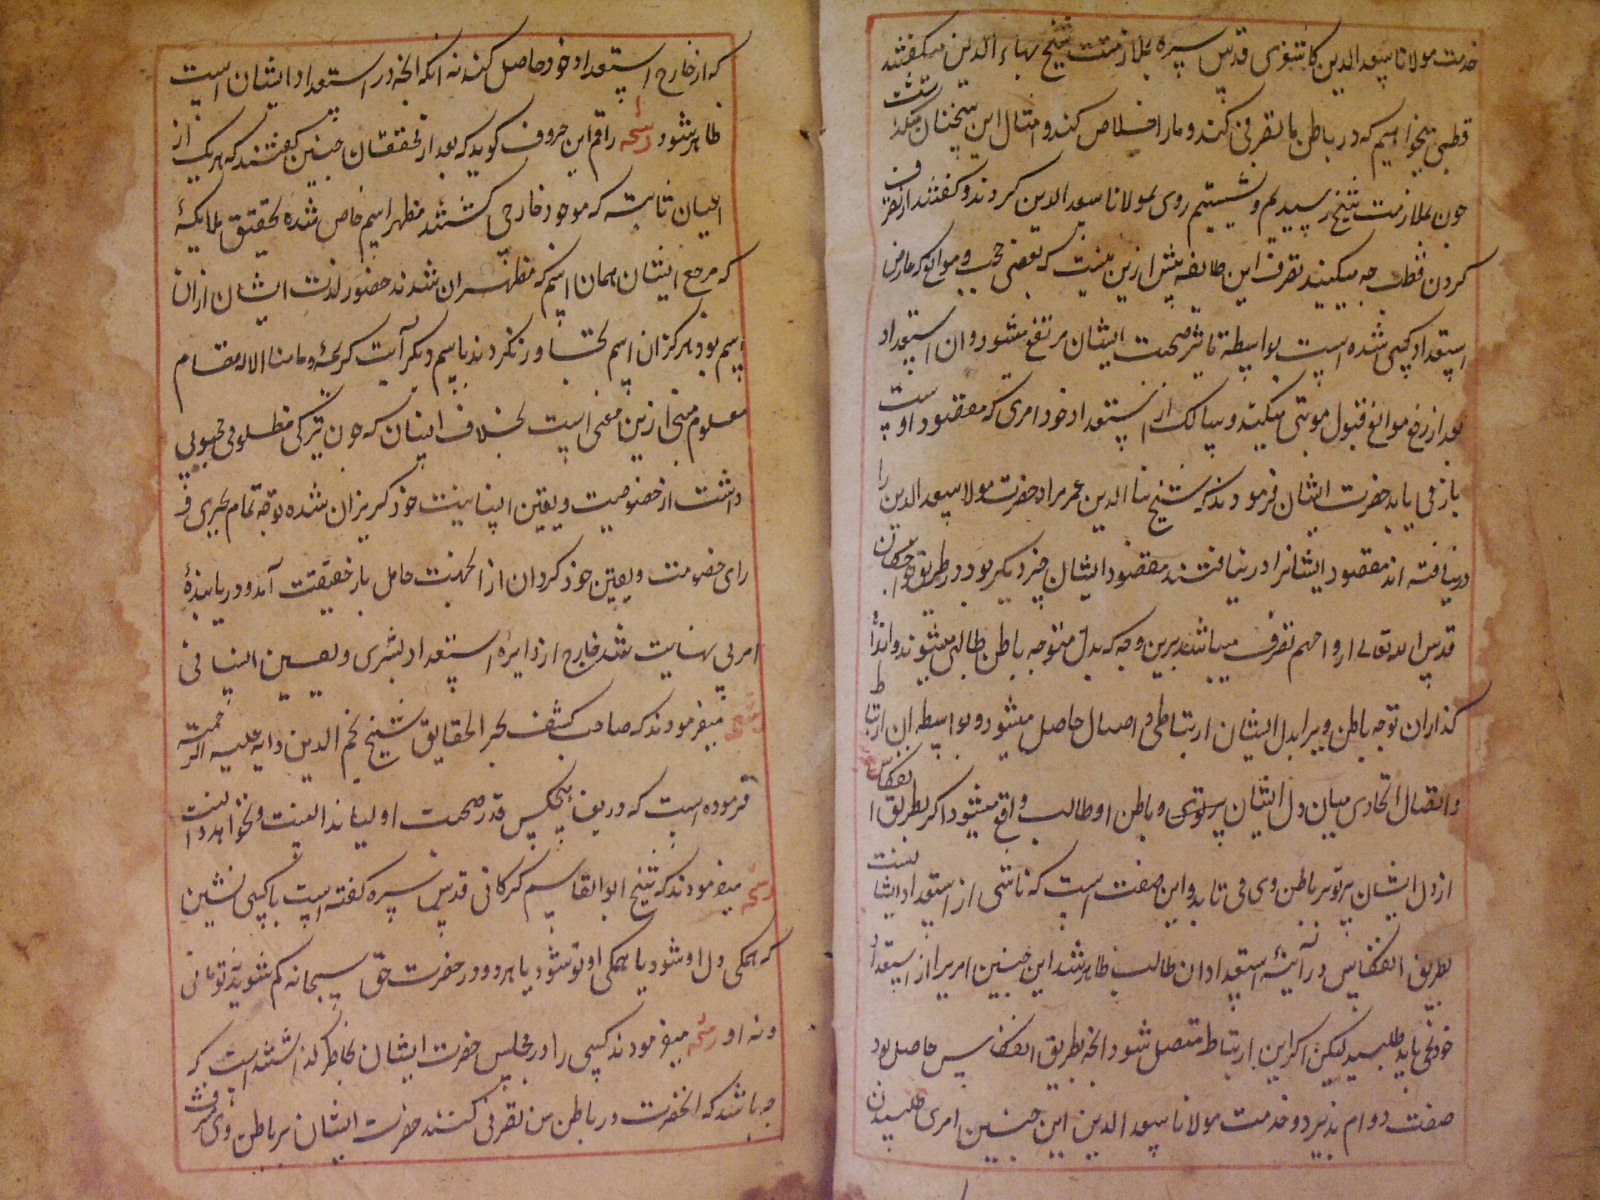 خدمت مولانا سعد الدین کاشغری قدس سره بملازمت شیخ بهاء الدین میکفتند
قطبی میخواهیم که در باطن ما تصرفی کند و مارا خلاص کند و امثال این سخنان
چون بملازمت شیخ رسیدیم و نشستیم روی بمولانا سعد الدین کردند و کفتند از تصرف
کردن قطب چه میکنید تصرف این طایفه بیش ازین نیست که بعضی حجب و موانع که عارض
استعداد کسی شده است بواسطه تاثیر صحبت ایشان مرتفع میشود و آن استعداد
بعد از رفع موانع قبول موهبتی میکند و سالک از استعداد خود امری که مقصود اوست
باز می یابد حضرت ایشان فرمودند که شیخ بها الدین عمر مراد حضرت مولانا سعد الدین را
درنیافته اند مقصود ایشانرا درنیافتند مقصود ایشان چیز دیکر بود در طریق خواجکان
قدس الله تعالی ارواحهم تصرف میباشد برین وجه که بدل متوجه باطن طالبی میشوند و از راه
کذاران توجه باطن ویرا بدل ایشان ارتباطی و اتصال حاصل میشود و بواسطه آن ارتباط
و اتصال اتحادی میان دل ایشان و باطن او طالب واقع میشود اکر بطریق انعکاس
از دل ایشان پرتو بر باطن وی می تابد و این صفت است که ناشی از استعداد ایشانست
بطریق انعکاس در آیینه استعداد آن طالب ظاهر شد این چنین امریرا از استعداد
خود نمی باید طلبید لیکن اکر این ارتباط متصل شود آنچه بطریق انعکاس حاصل بود
صفت دوام پذیرد و خدمت مولانا سعد الدین این چنین امری طلبیدن
که از خارج استعداد خود حاصل کنند نه آنکه آنچه در استعداد ایشان است
ظاهر شود رشحه راقم این حروف کوید که بعد از محققان چنین کفتند که هر یک از
اعیان ثابته که موجود خارجی کشتند مظهر اسم خاص شده بتحقیق ملایکه
که مرجع ایشان همان اسم که مظهر آن شدند حضور لذت ایشان از آن
اسم بود هرکز از آن اسم تجاوز نکردند باسم دیکر آیت کریمه و ما منا الا له مقام
معلوم منبی ازین معنی است بخلاف انسان که چون تیرکی مظلومی جهولی
داشت از خصوصیت و تعین انسانیت خود کریزان شده توجه تمام
رای خصومت و تعین خود کردان از آنجهت حامل بار حقیقت آمد و دریابنده
امر بی نهایت شد خارج از دایره استعداد بشری و تعین انسانی
رشحه میفرمودند که صاحب کشف بحر الحقایق شیخ نجم الدین دایه علیه الرحمت
فرموده است که دریغ هیچکس قدر صحبت اولیا ندانست و نخواهد دانست
رشحه میفرمودند که شیخ ابو القاسم کرکانی قدس سره کفته است با کسی نشین
که همکی دل او شود یا همکی او تو شود یا هر دو در حضرت حق سبحانه کم شوید نه تو مانی
و نه او رشحه میفرمودند کسی را در مجلس حضرت ایشان بخاطر کذاشته است که
چه باشد که آنحضرت در باطن من تصرفی کنند حضرت ایشان بر باطن وی